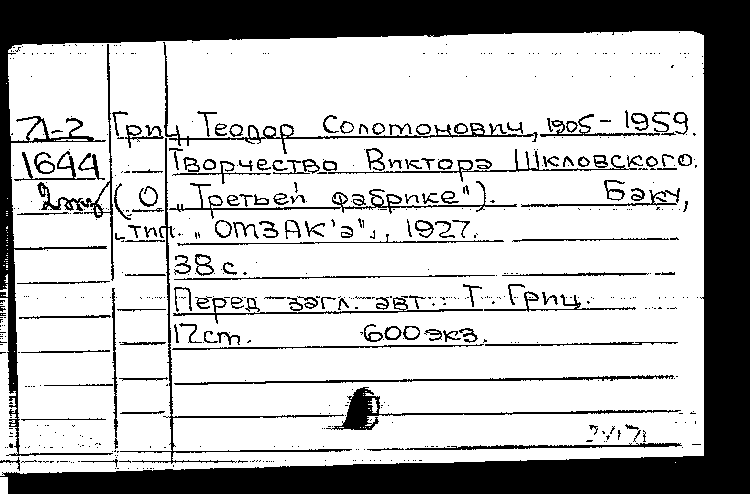 71-2 Гриц, Теодор Соломонович, 1905-1959.
1644 Творчество Виктора Шкловского.
2экз (О „Третьей фабрике"). Баку,
„тип. „ОМЗАК'а"„, 1927.
38 с.
Перед загл. авт.: Т. Гриц.
17 cm. 600 экз.